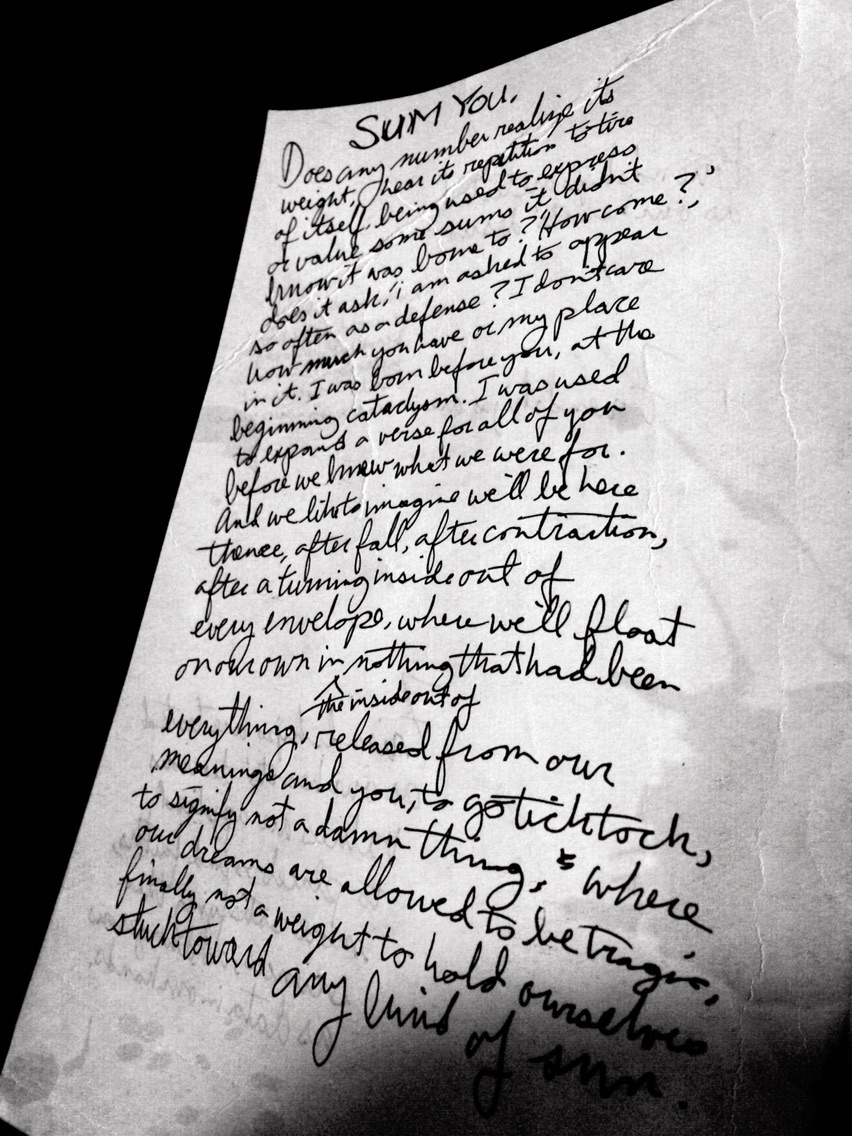 SUM YOU.
Does any number realize its
weight, hear its repetition to tire
of itself, being used to express
or value some sums it didn't
know it was borne to? "How come?",
does it ask, "i am asked to appear
so often as a defense? I don't care
how much you have or my place
in it. I was born before you, at the
beginning cataclysm. I was used
to expand a verse for all of you
before we knew what we were for.
And we like to imagine we'll be here
thence, after fall, after contraction,
after a turning inside out of
every envelope, where we'll float
on our own in nothing that had been
the inside out of
everything, released from our
meanings and you, to go ticktock,
to signify not a damn thing, & where
our dreams are allowed to be tragic,
finally not a weight to hold ourselves
stuck toward any kind of sun.